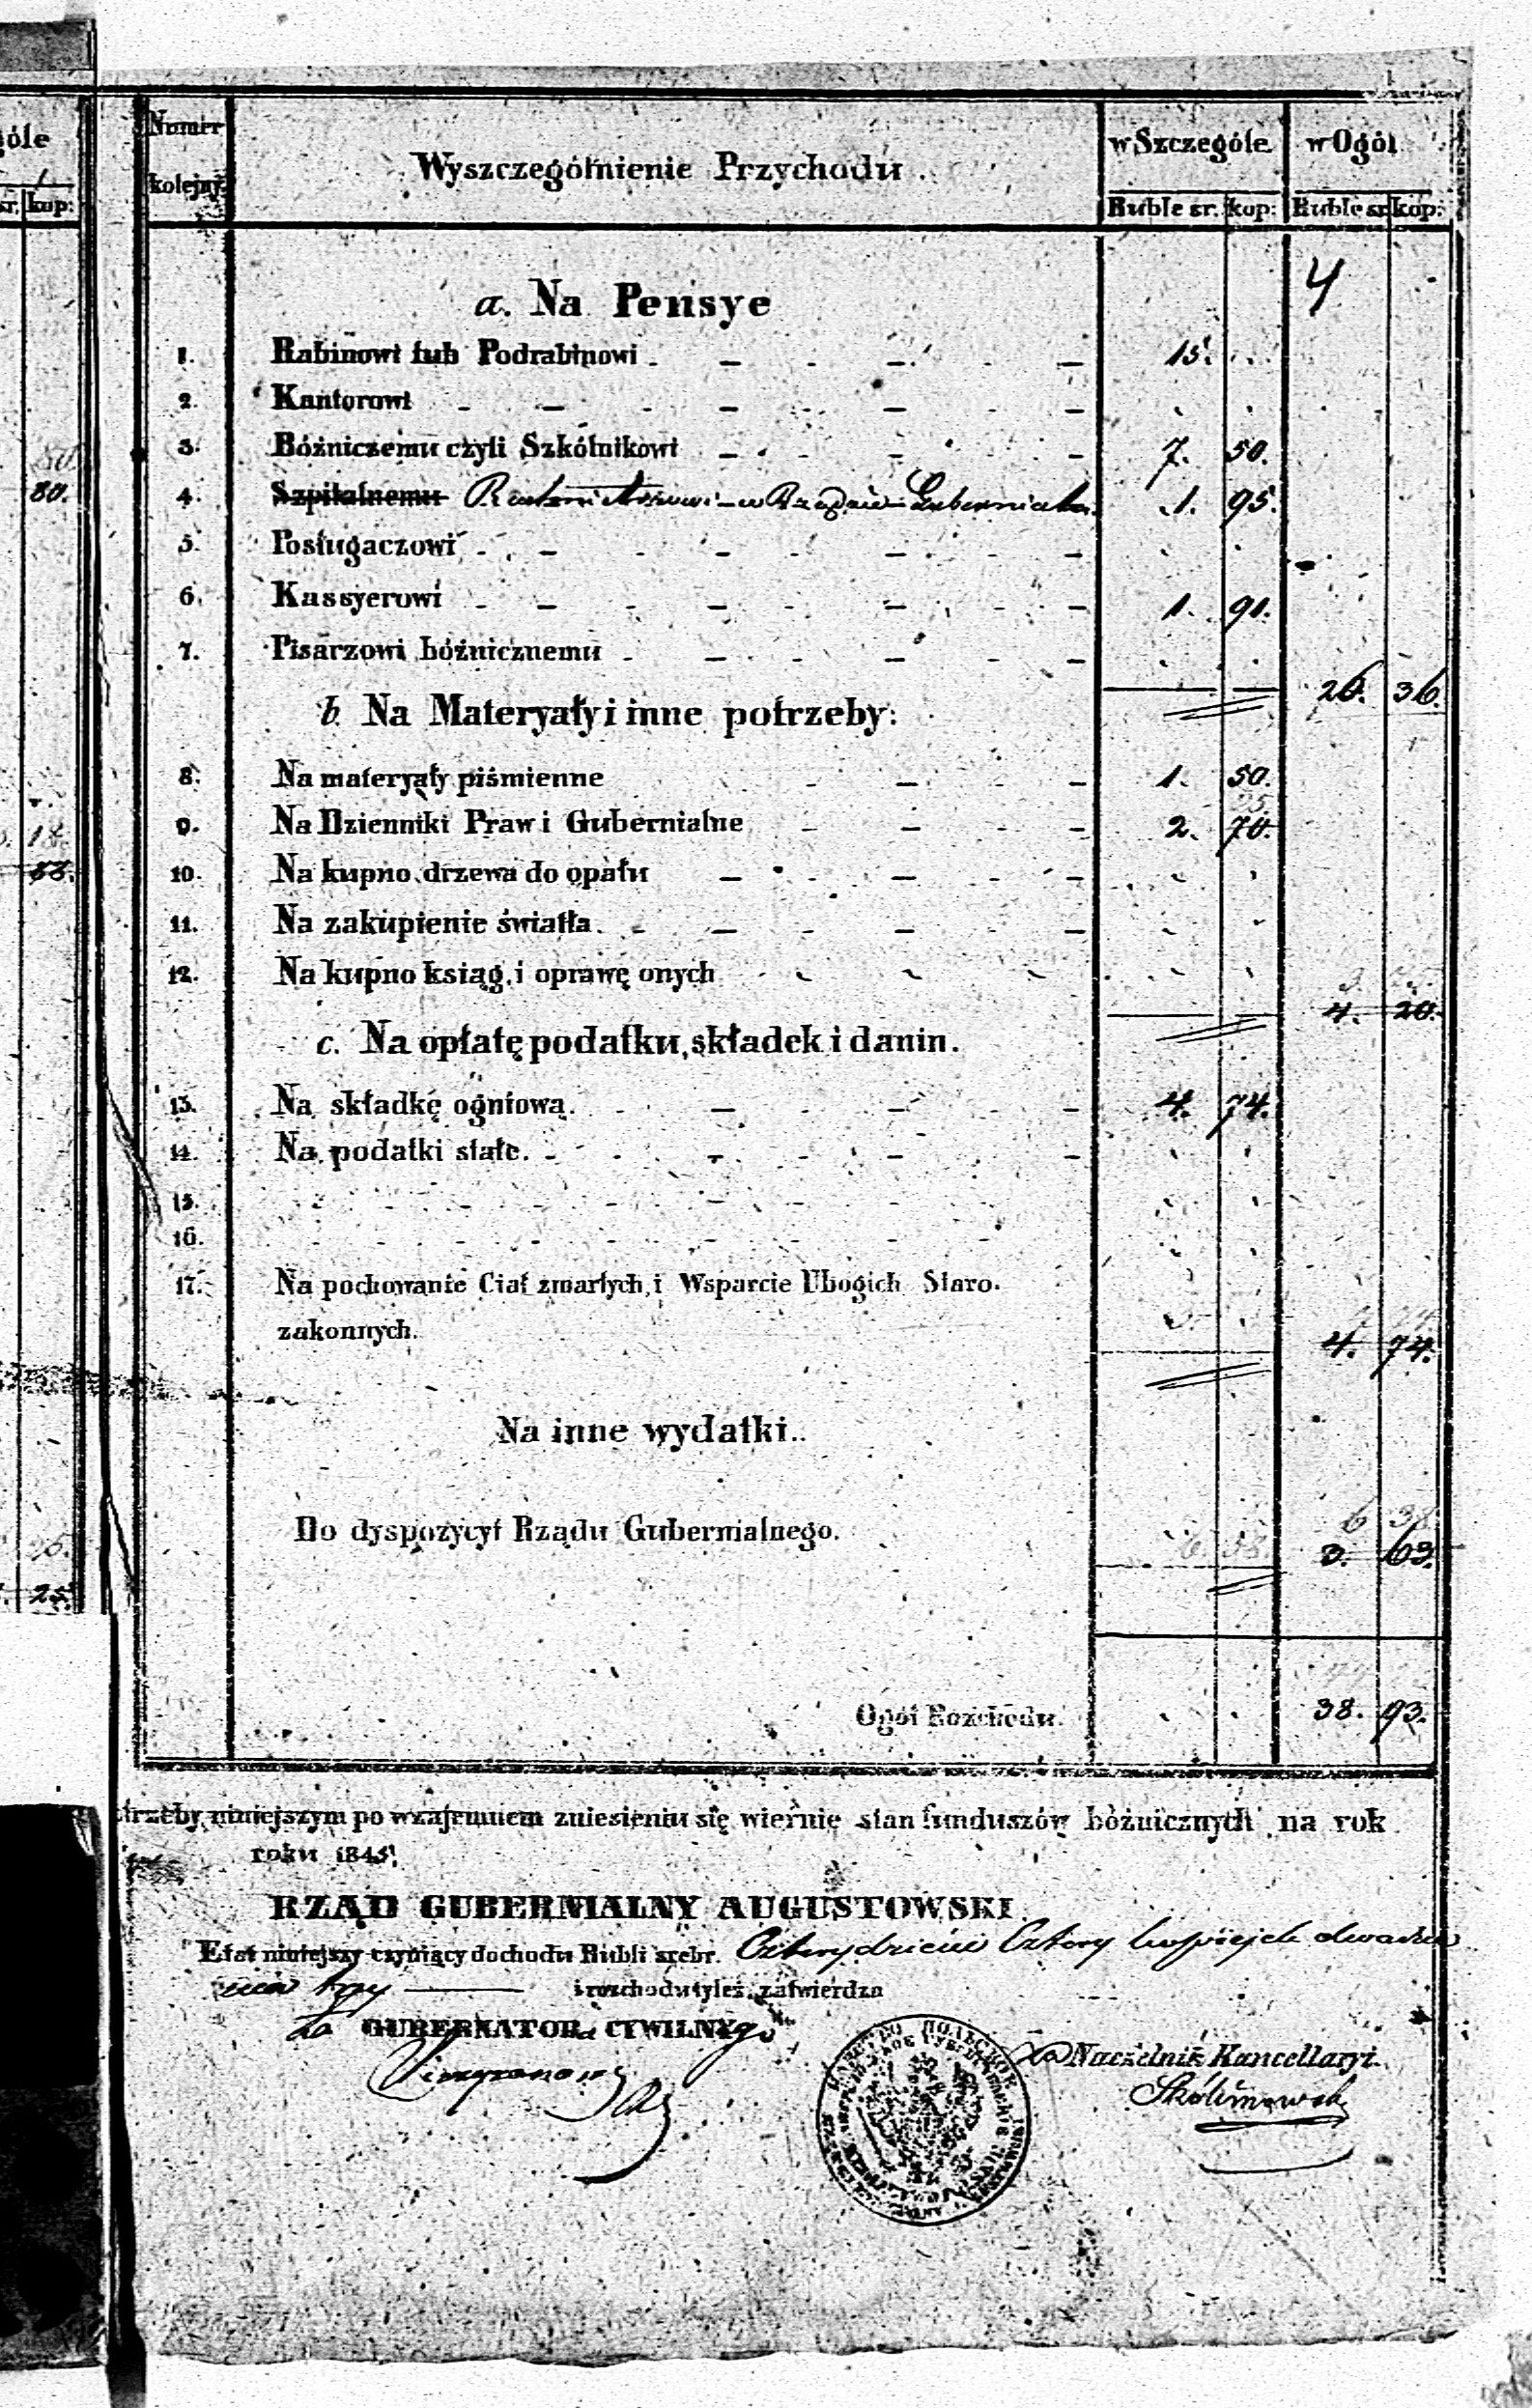 góle
sr. kop:
80.
80.
18.
53.
25.
Numer kolejny
Wyszczegółnienie Przychodu.
w Szczególe
w Ogół
Ruble sr. kop:
Ruble sr. kop:
4
a. Na Pensye
1. Rabinowi lub Podrabinowi 15.
2. Kantorowi
3. Bóżniczemu czyli Szkólnikowi 7. 50.
4. Szpitalnemu w Rządzie Gubernialn. 1. 95.
5. Posługaczowi
6. Kassyerowi 1. 91.
7. Pisarzowi bóźnicznemu
26. 36.
b. Na Materyały i inne potrzeby:
8. Na materyały piśmienne 1. 50.
25
9. Na Dzienniki Praw i Gubernialne 2. 70.
10. Na kupno drzewa do opału
11. Na zakupienie światła.
12. Na kupno ksiąg, i oprawę onych
3. 75.
4. 20.
c. Na opłatę podatku, składek i danin.
13. Na składkę ogniową. 4. 74.
14. Na podatki stałe.
15.
16.
17. Na pochowanie Ciał zmarłych, i Wsparcie Ubogich Staro.
zakonnych.
4. 74.
Na inne wydatki..
6 38
Do dyspozycyi Rządu Gubernialnego. 3. 63.
Ogół Rozchodu. 38. 93.
trzeby niniejszym po wzajemnem zniesieniu się wiernie stan funduszów bóżnicznych na rok
roku 1845
RZĄD GUBERNIALNY AUGUSTOWSKI
Etat niniejszy czyniący dochodu Rubli srebr. Czterydzieści Cztery kopiejek dwadzie
ścia trzy i rozchodu tyleż, zatwierdza
Za GUBERNATORa CYWILNYgo
Za Naczelnik Kancellaryi.
Skolimowski